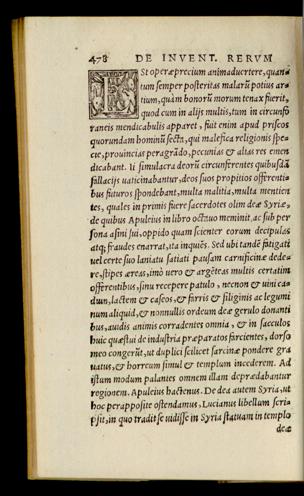 478 DE INVENT. RERVM
ESt operæprecium animaduertere, quan
tum semper posteritas malarũ potius ar
tium, quàm bonorũ morum tenax fuerit,
quod cum in alijs multis, tum in circunfo
raneis mendicabulis apparet, fuit enim apud priscos
quorundam hominũ secta, qui malefica religionis spe
cie, prouincias peragrãdo, pecunias & altas res emen
dicabant. Ii simulacra deorũ circunferentes quibusdã
fallacijs uaticinabantur, deos suos propitios offerentibus
futuros spondebant, multa malitia, multa mentien
tes, quales in primis fuere sacerdotes olim deæ Syriæ,
de quibus Apuleius in libro octauo meminit, ac sub per
sona asini sui, oppido quam scienter eorum decipulas
atq; fraudes enarrat, ita inquiẽs. Sed ubi tandẽ fatigati
uel certe suo laniatu satiati pausam carnificinæ dede-
re, stipes æreas, imò uero & argẽteas multis certatim
offerentibus, sinu recepere patulo, necnon & uini ca-
dum, lactem & caseos, & farris & siliginis ac legumi
num aliquid, & nonnullis ordeum deæ gerulo donanti
bus, audis animis corradentes omnia, & in sacculos
huic quæstui de industria præparatos farcientes, dorso
meo congerũt, ut duplici scilicet sarcinæ pondere gra
uatus, & horreum simul & templum incederem. Ad
istum modum palantes omnem illam deprædabantur
regionem. Apuleius hactenus. De dea autem Syria, ut
hoc perapposite ostendamus, Lucianus libellum scri-
psit, in quo tradit se uidisse in Syria statuam in templo
deæ